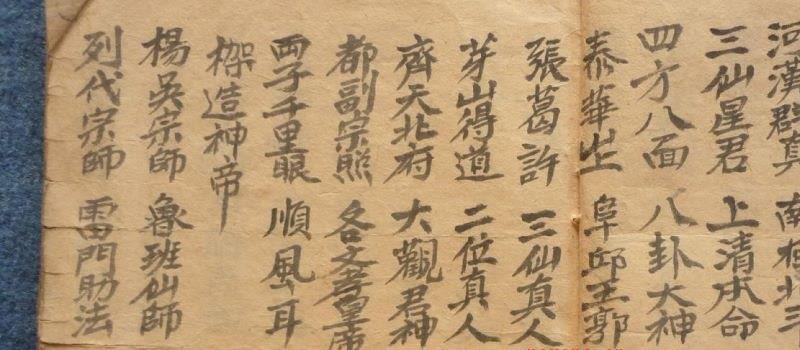 河漢群真 南極北斗
三仙星君 上清本命
四方八面 八卦大神
泰華山 阜邱王郭
張葛許 三仙真人
芽山得道 二位真人
齊天北府 大觀君神
都副宗照 各文孝皇帝
両子千里眼 順風耳
造神帝
楊吳宗師 魯班仙師
列代宗師 雷門助法